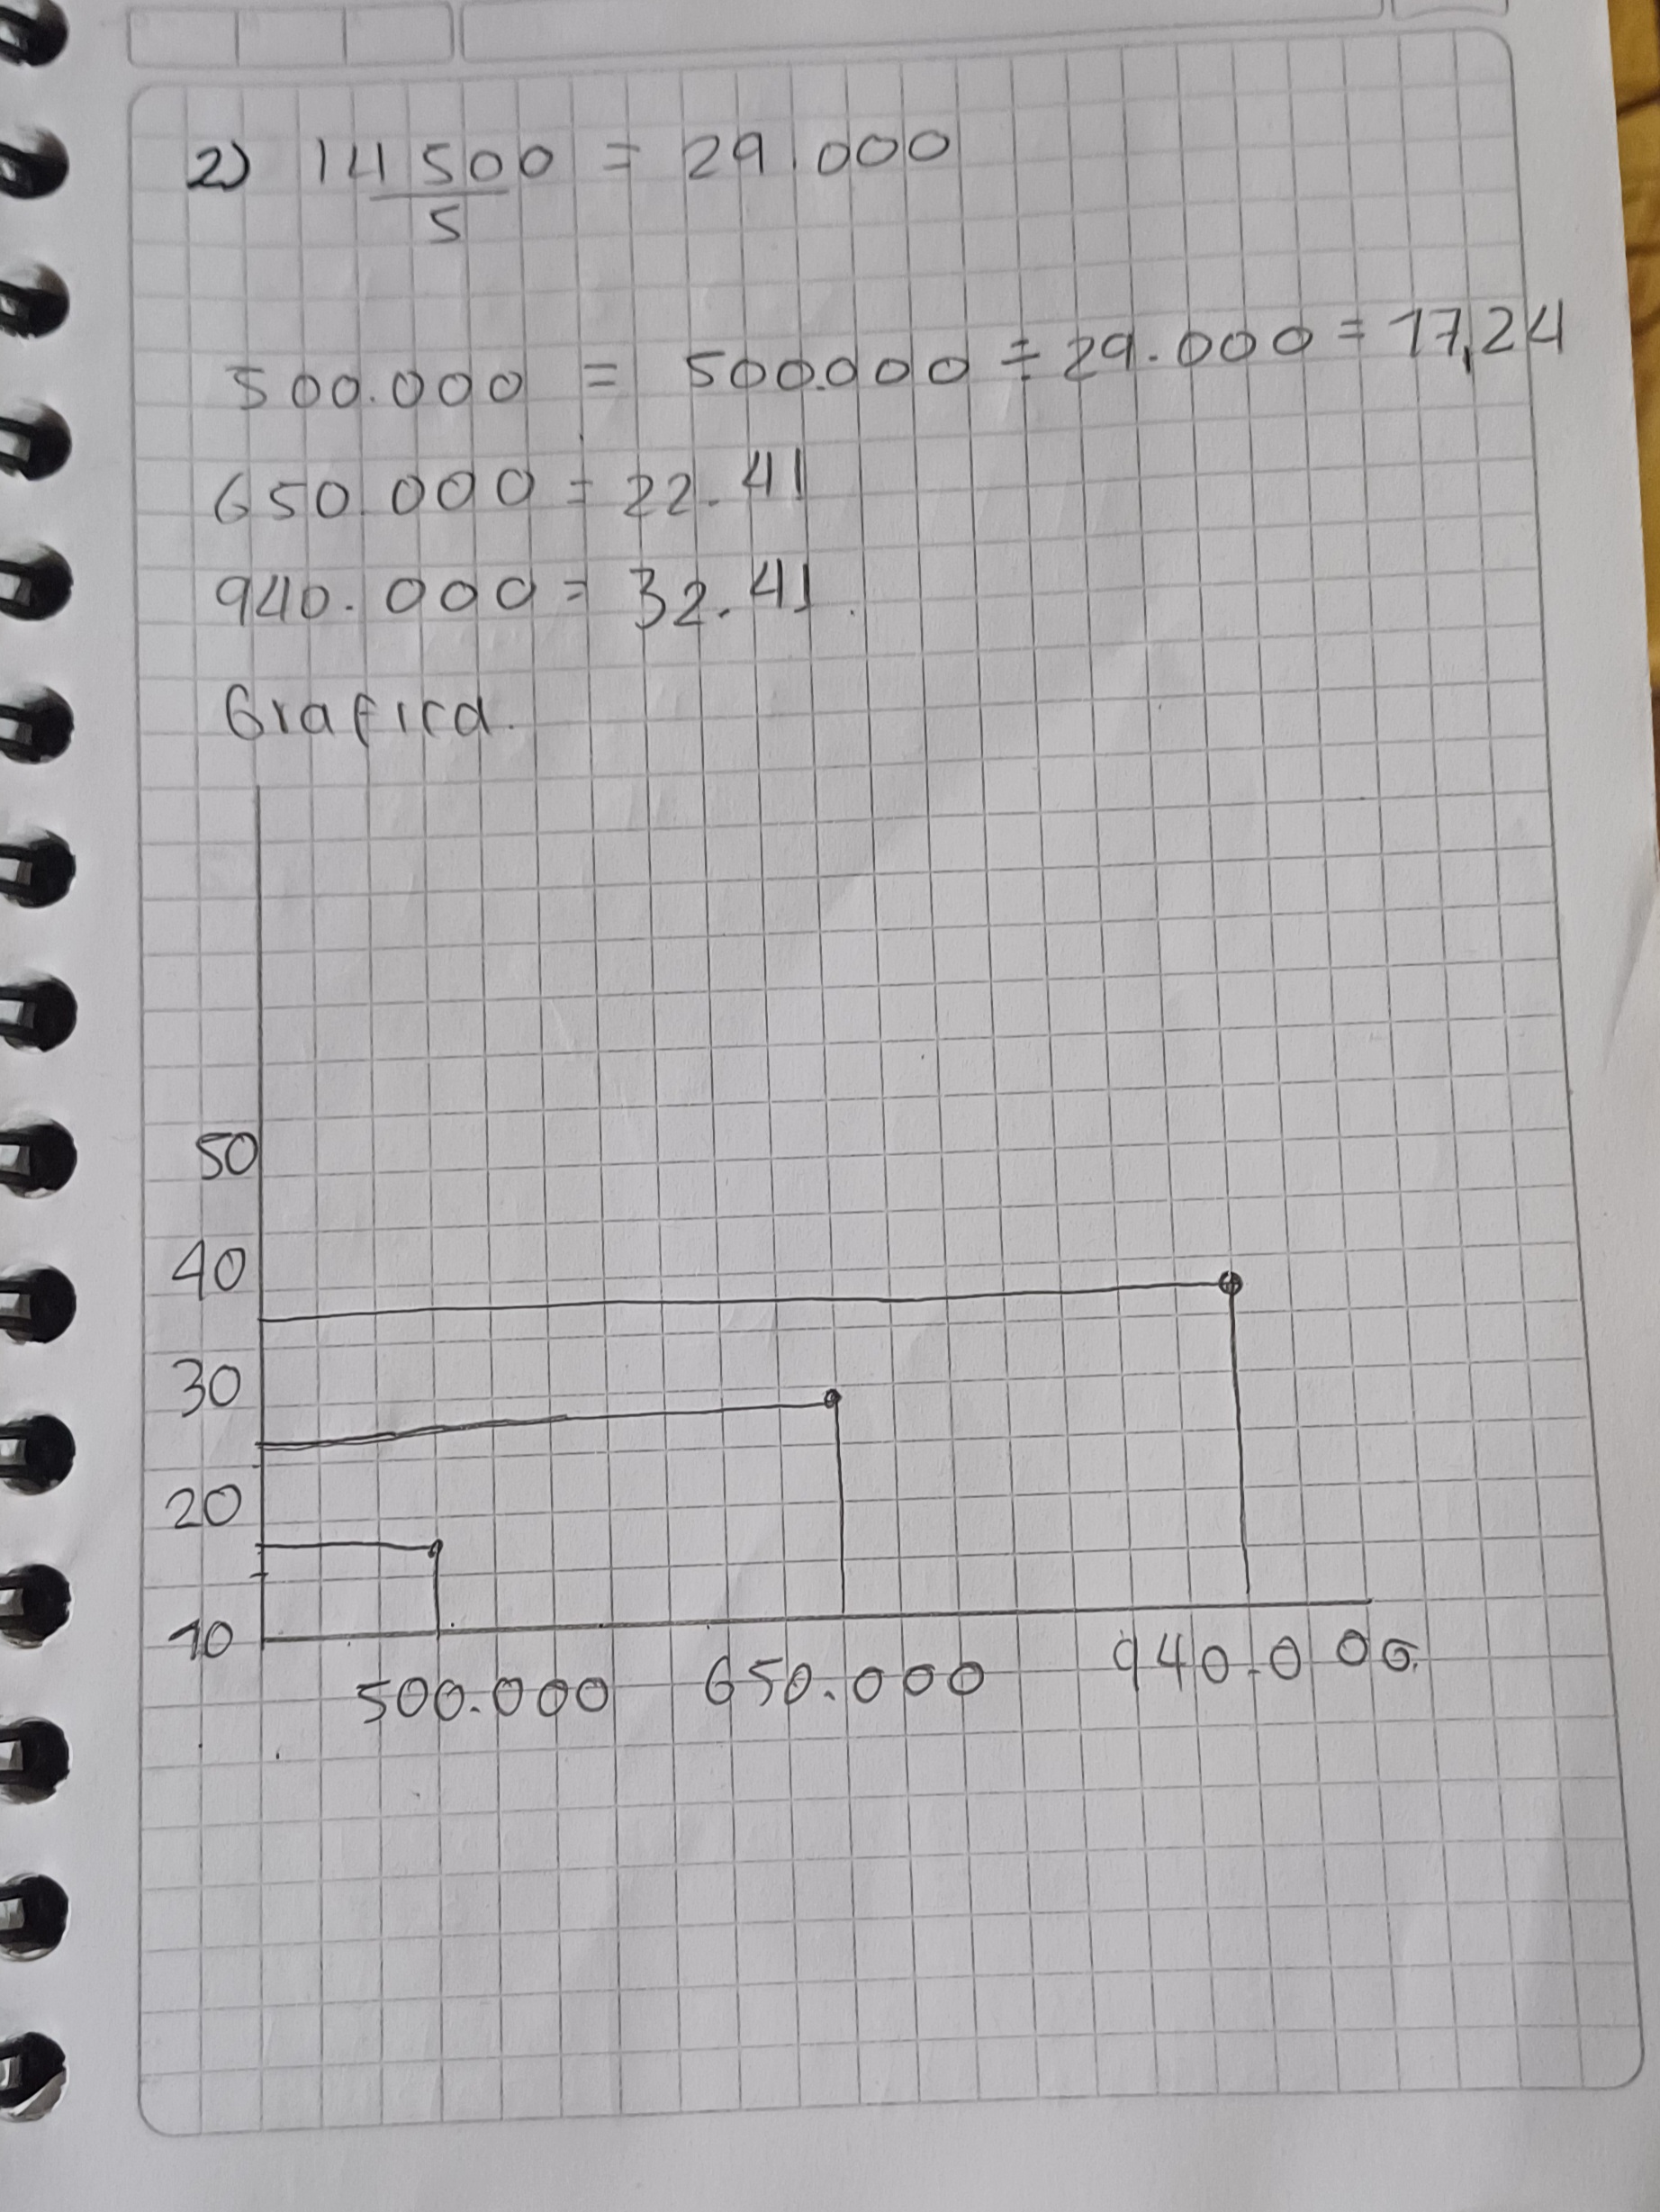 2) 14500 = 29.000
5
500.000 = 500.000 ÷ 29.000 = 17,24
650.000 = 22.41
940.000 = 32.41.
Grafica.
50
40
30
20
10
500.000 650.000 940.000.